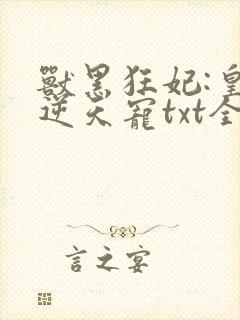 獸黑狂妃:皇
逆天寵txt全
言之宴